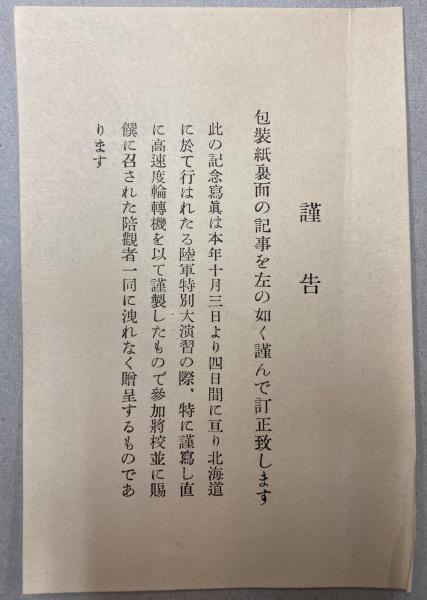 謹告
包裝紙裏面の記事を左の如く謹んで訂正致します
此の記念寫眞は本年十月三日より四日間に亙り北海道
に於て行はれたる陸軍特別大演習の際、特に謹寫し直
に高速度輪轉機を以て謹製したもので參加將校並に賜
饌に召された陪觀者一同に洩れなく贈呈するものであ
ります